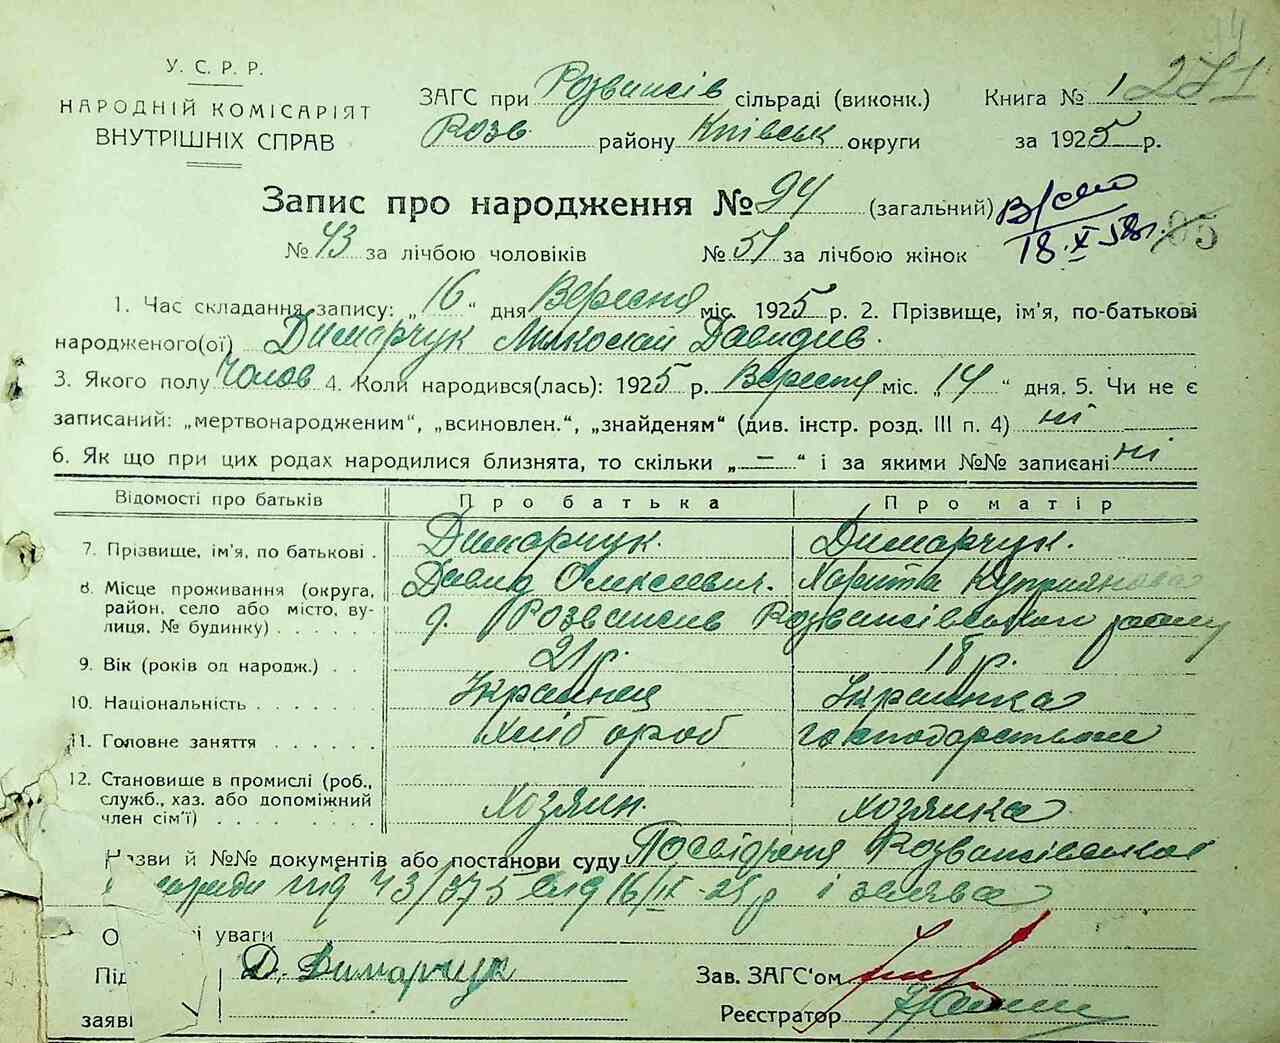 У. С. Р. Р.
НАРОДНІЙ КОМІСАРІЯТ
ВНУТРІШНІХ СПРАВ
ЗАГС при Розважів сільраді (виконк.) Книга № 1 271
Розв. району Київськ. округи за 1925 р.
Запис про народження № 94 (загальний)
18.X 58г.
№ 43 за лічбою чоловіків № 51 за лічбою жінок
1. Час складання запису: „16" дня Вересня міс. 1925 р. 2. Прізвище, ім'я, по-батькові
народженого(ої) Димарчук Миколай Давидів.
3. Якого полу Чолов 4. Коли народився(лась): 1925 р. Вересня міс. „14" дня. 5. Чи не є
записаний: „мертвонародженим", „всиновлен.", „знайденям" (див. інстр. розд. III п. 4) ні
6. Як що при цих родах народилися близнята, то скільки „—" і за якими №№ записані ні
Відомості про батьків Про батька Про матір
7. Прізвище, ім'я, по батькові . Димарчук. Димарчук.
Давид Олексієвич. Харита
8. Місце проживання (округа,
район, село або місто, ву-
лиця, № будинку) . . . . . . Розважів Розважівського району
9. Вік (років од народж.) . . 21 р. 18 р.
10. Національність . . . . . . Українець Українка
11. Головне заняття . . . . . . Хлібороб господарством
12. Становище в промислі (роб.,
служб., хаз. або допоміжний
член сім'ї) . . . . . . . . . Хозяин. хозяйка
Назви й №№ документів або постанови суду Посвідченя Розважівської
під 43/375 від 16/IX-25 р і заява
уваги
Д. Димарчук Зав. ЗАГС'ом
заяві Реєстратор